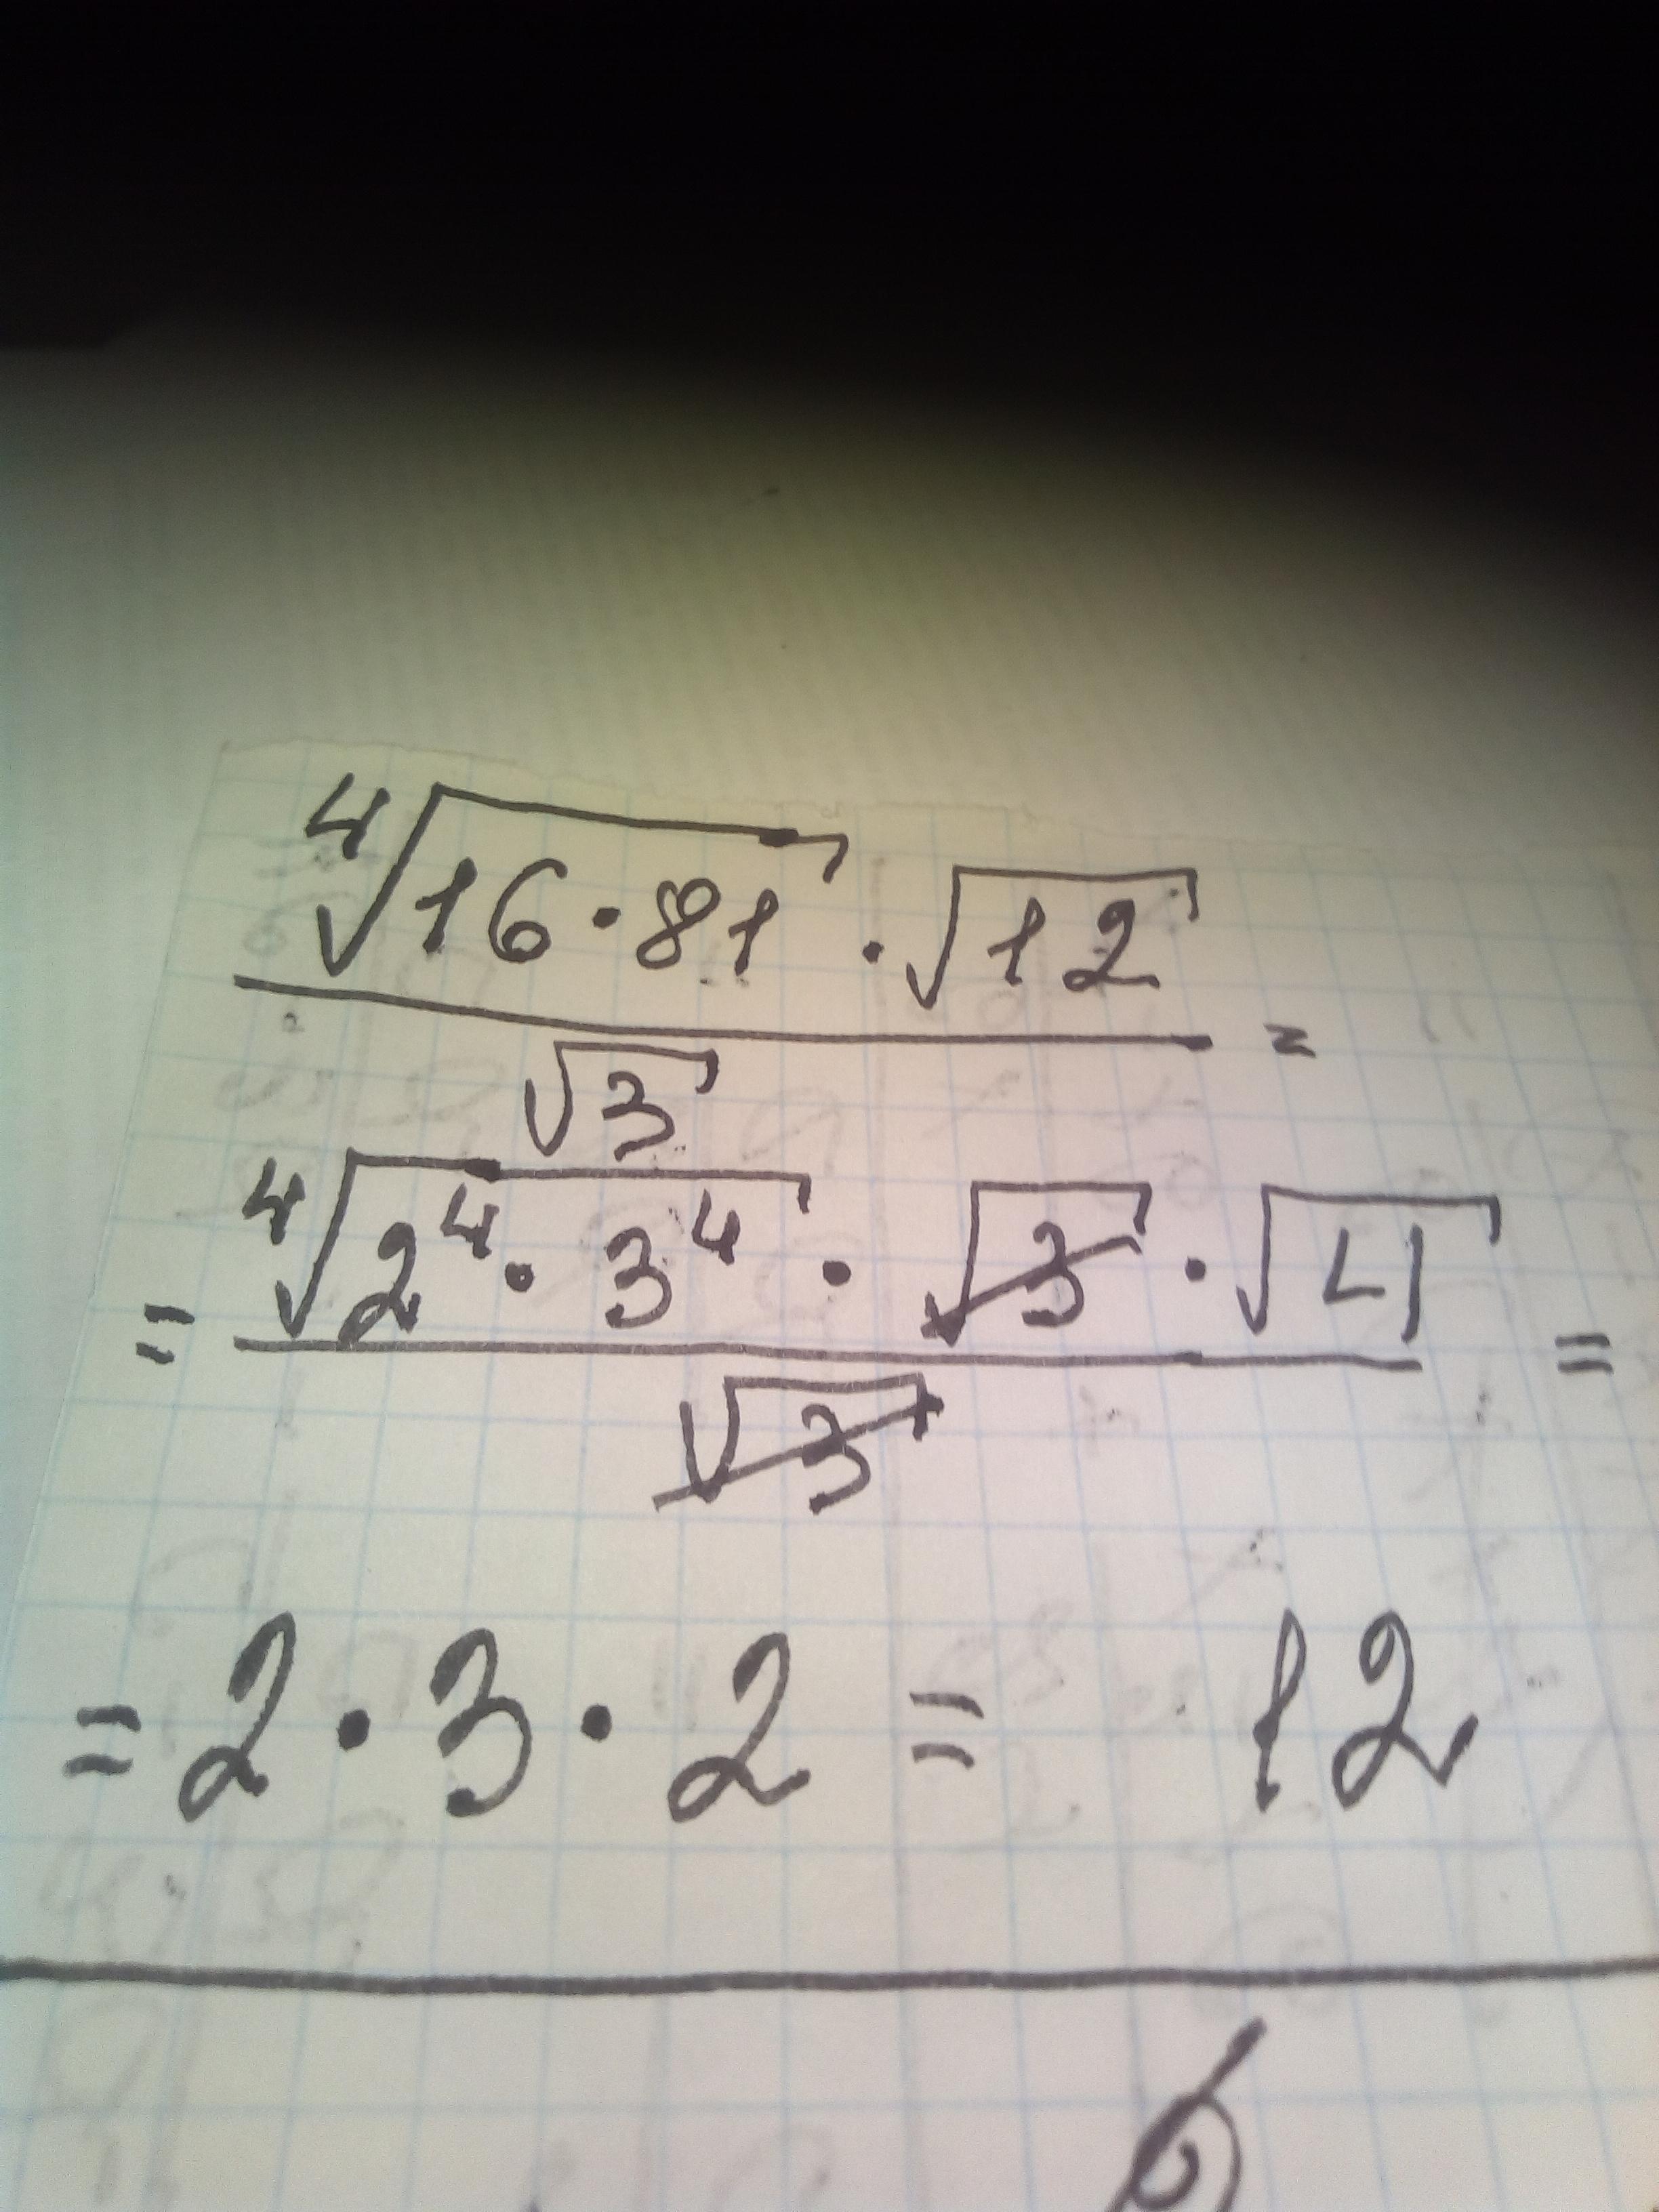 ⁴√(16·81) · √12 / √3 =
= ⁴√(2⁴ · 3⁴) · √3 · √4 / √3 =
= 2 · 3 · 2 = 12